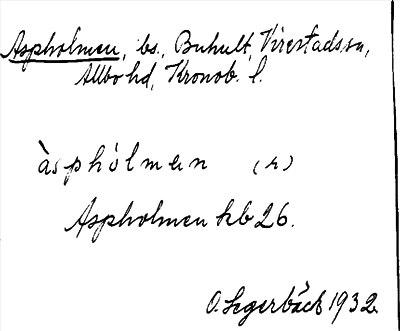 Aspholmen, bs., Buhult, Virestads sn,
Allbo hd, Kronob. l.
àsphólmen (r)
Aspholmen kb 26.
O. Segerbäck 1932